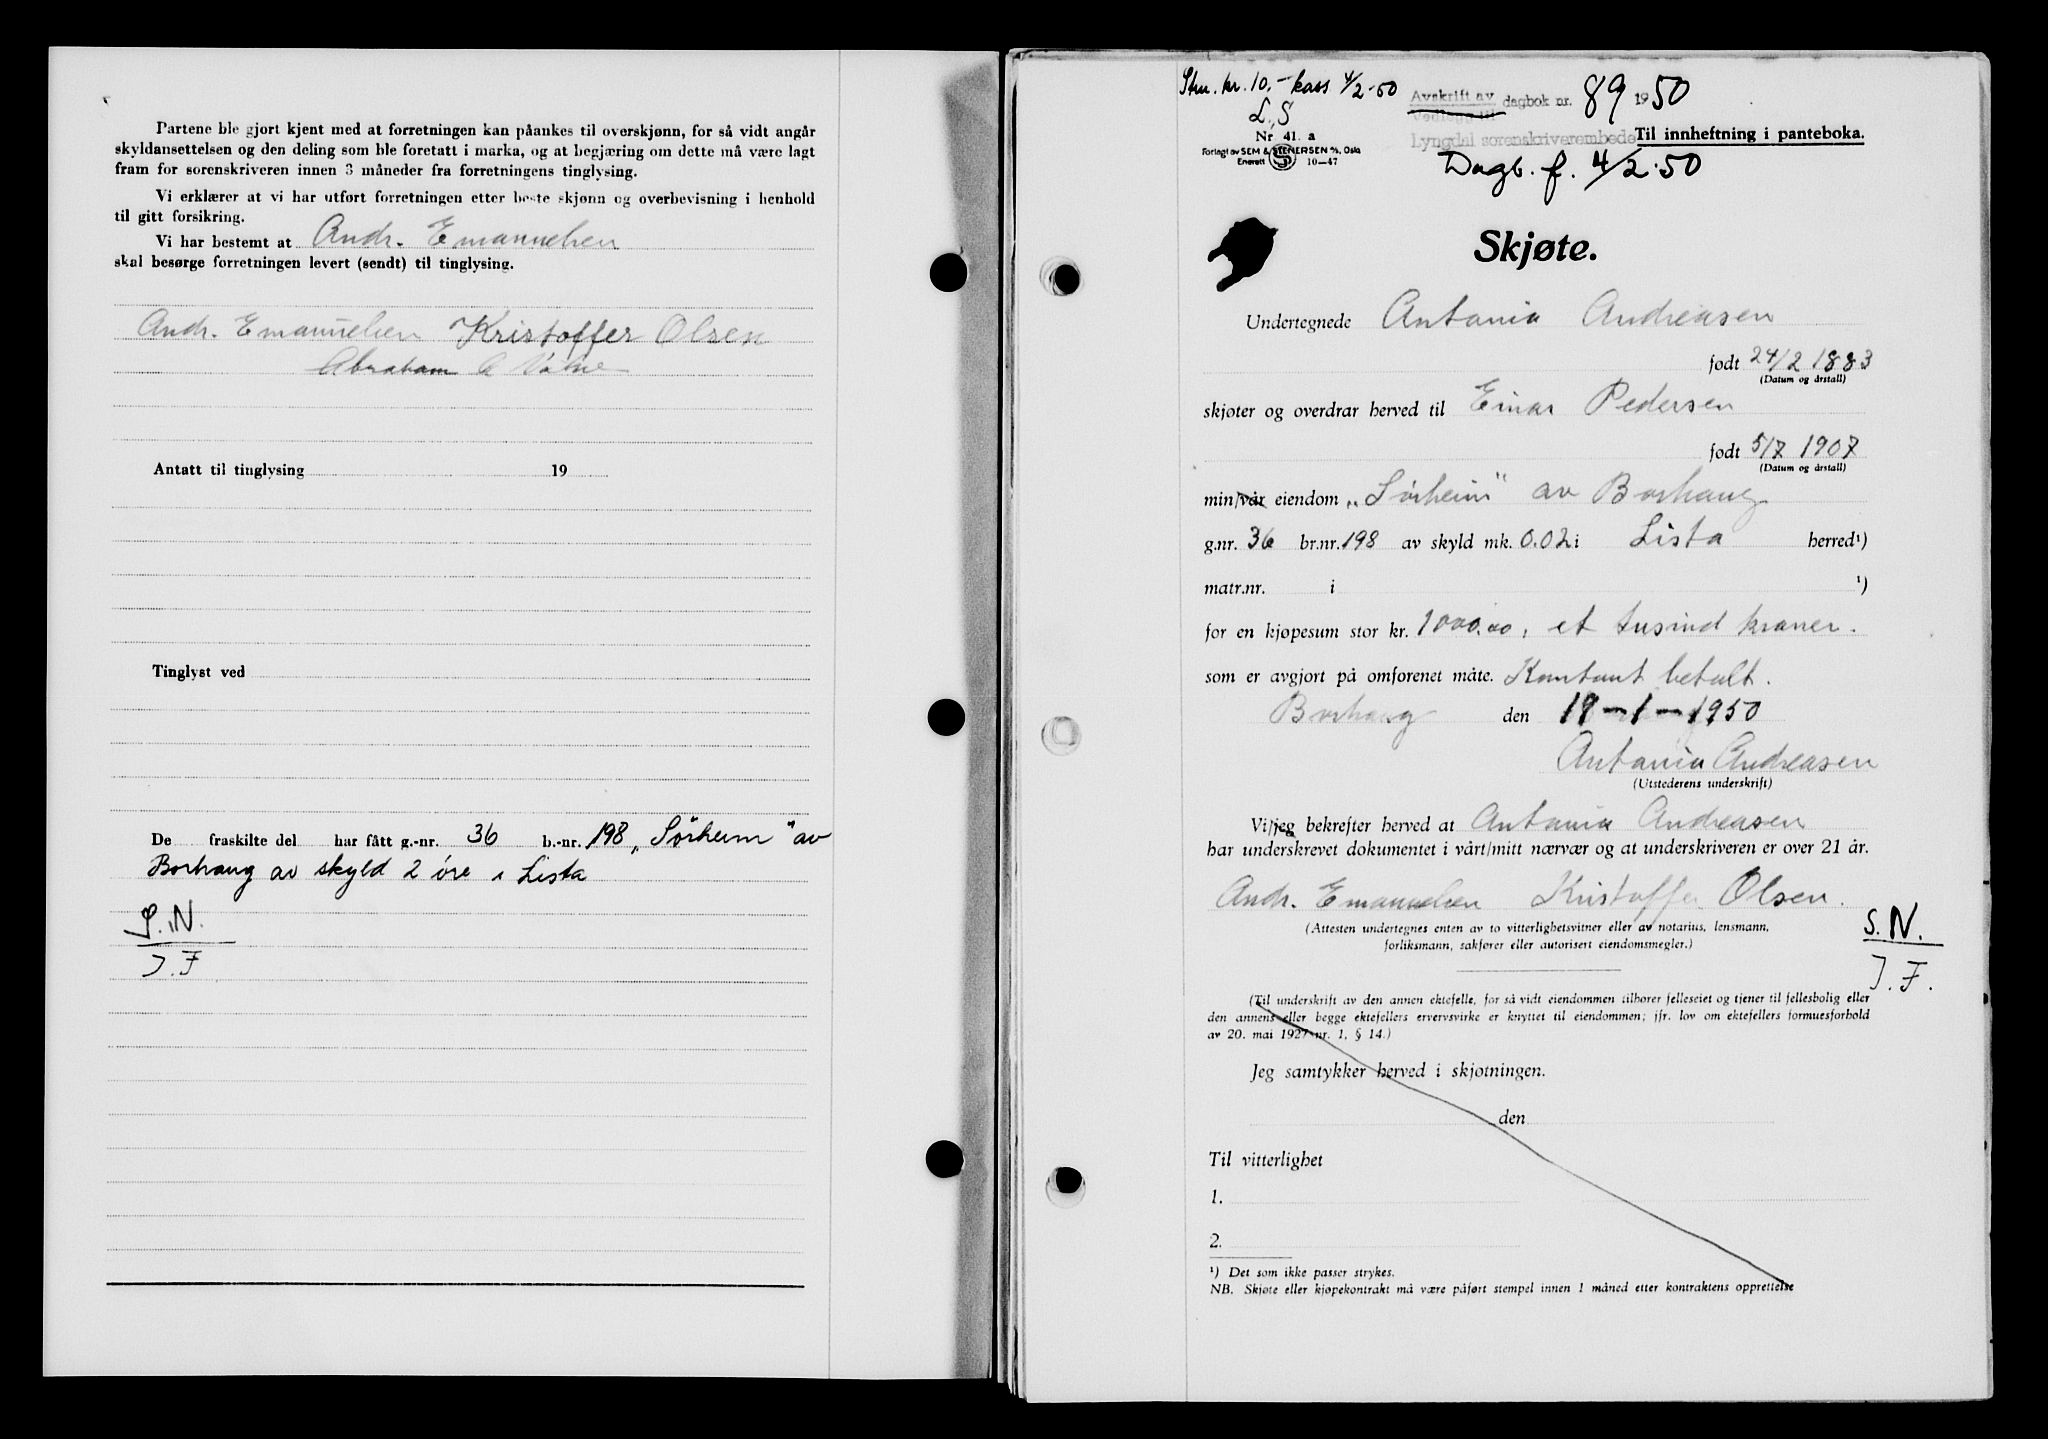 Partene ble gjort kjent med at forretningen kan påankes til overskjønn, for så vidt angår
skyldansettelsen og den deling som ble foretatt i marka, og at begjæring om dette må være lagt
fram for sorenskriveren innen 3 måneder fra forretningens tinglysing.
Vi erklærer at vi har utført forretningen etter beste skjønn og overbevisning i henhold
til gitt forsikring.
Vi har bestemt at Andr. Emanuelsen
skal besørge forretningen levert (sendt) til tinglysing.
Andr. Emanuelsen Kristoffer Olsen
Abraham
Antatt til tinglysing 19
Tinglyst ved
De fraskilte del har fått g.-nr. 36 b.-nr. 198 „Sørheim" av
Borhaug av skyld 2 øre i Lista
S.N.
J.F
Stm. kr. 10.- kass 4/2-50
L.S
Nr. 41. a
Forlagt av SEM & STENERSEN A/S, Oslo
Enerett S 10—47
Avskrift av dagbok nr. 89 1950
Vedlegg til
Lyngdal sorenskriverembede Til innheftning i panteboka.
Dagb. f. 4/2.50
Skjøte.
Undertegnede Antonia Andreasen
født 24/2 1883
(Datum og årstall)
skjøter og overdrar herved til Einar Pedersen
født 5/7 1907
(Datum og årstall)
min/vår eiendom „Sørheim" av Borhaug
g.nr. 36 br.nr. 198 av skyld mk. 0.02 i Lista herred¹)
matr.nr. i ¹)
for en kjøpesum stor kr. 1000.00, et tusind kroner.
som er avgjort på omforenet måte. Kontant betalt.
Borhaug den 19-1-1950
Antonia Andreasen
(Utstederens underskrift)
Vi/jeg bekrefter herved at Antonia Andreasen
har underskrevet dokumentet i vårt/mitt nærvær og at underskriveren er over 21 år.
Andr. Emanuelsen Kristoffer Olsen.
(Attesten undertegnes enten av to vitterlighetsvitner eller av notarius, lensmann,
forliksmann, sakfører eller autorisert eiendomsmegler.)
S.N.
J.F.
(Til underskrift av den annen ektefelle, for så vidt eiendommen tilhører felleseiet og tjener til fellesbolig eller
den annens eller begge ektefellers ervervsvirke er knyttet til eiendommen; jfr. lov om ektefellers formuesforhold
av 20. mai 1927 nr. 1, § 14.)
Jeg samtykker herved i skjøtningen.
den
Til vitterlighet
1.
2.
¹) Det som ikke passer strykes.
NB. Skjøte eller kjøpekontrakt må være påført stempel innen 1 måned etter kontraktens opprettelse